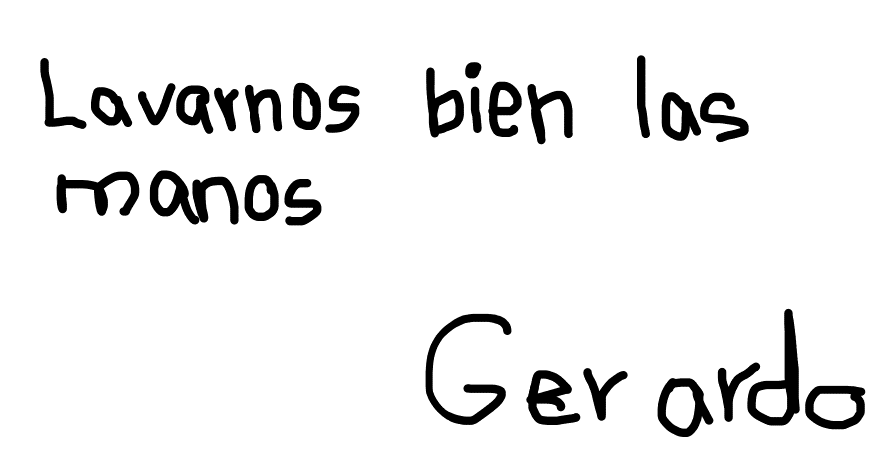 Lavarnos bien las
manos
Gerardo